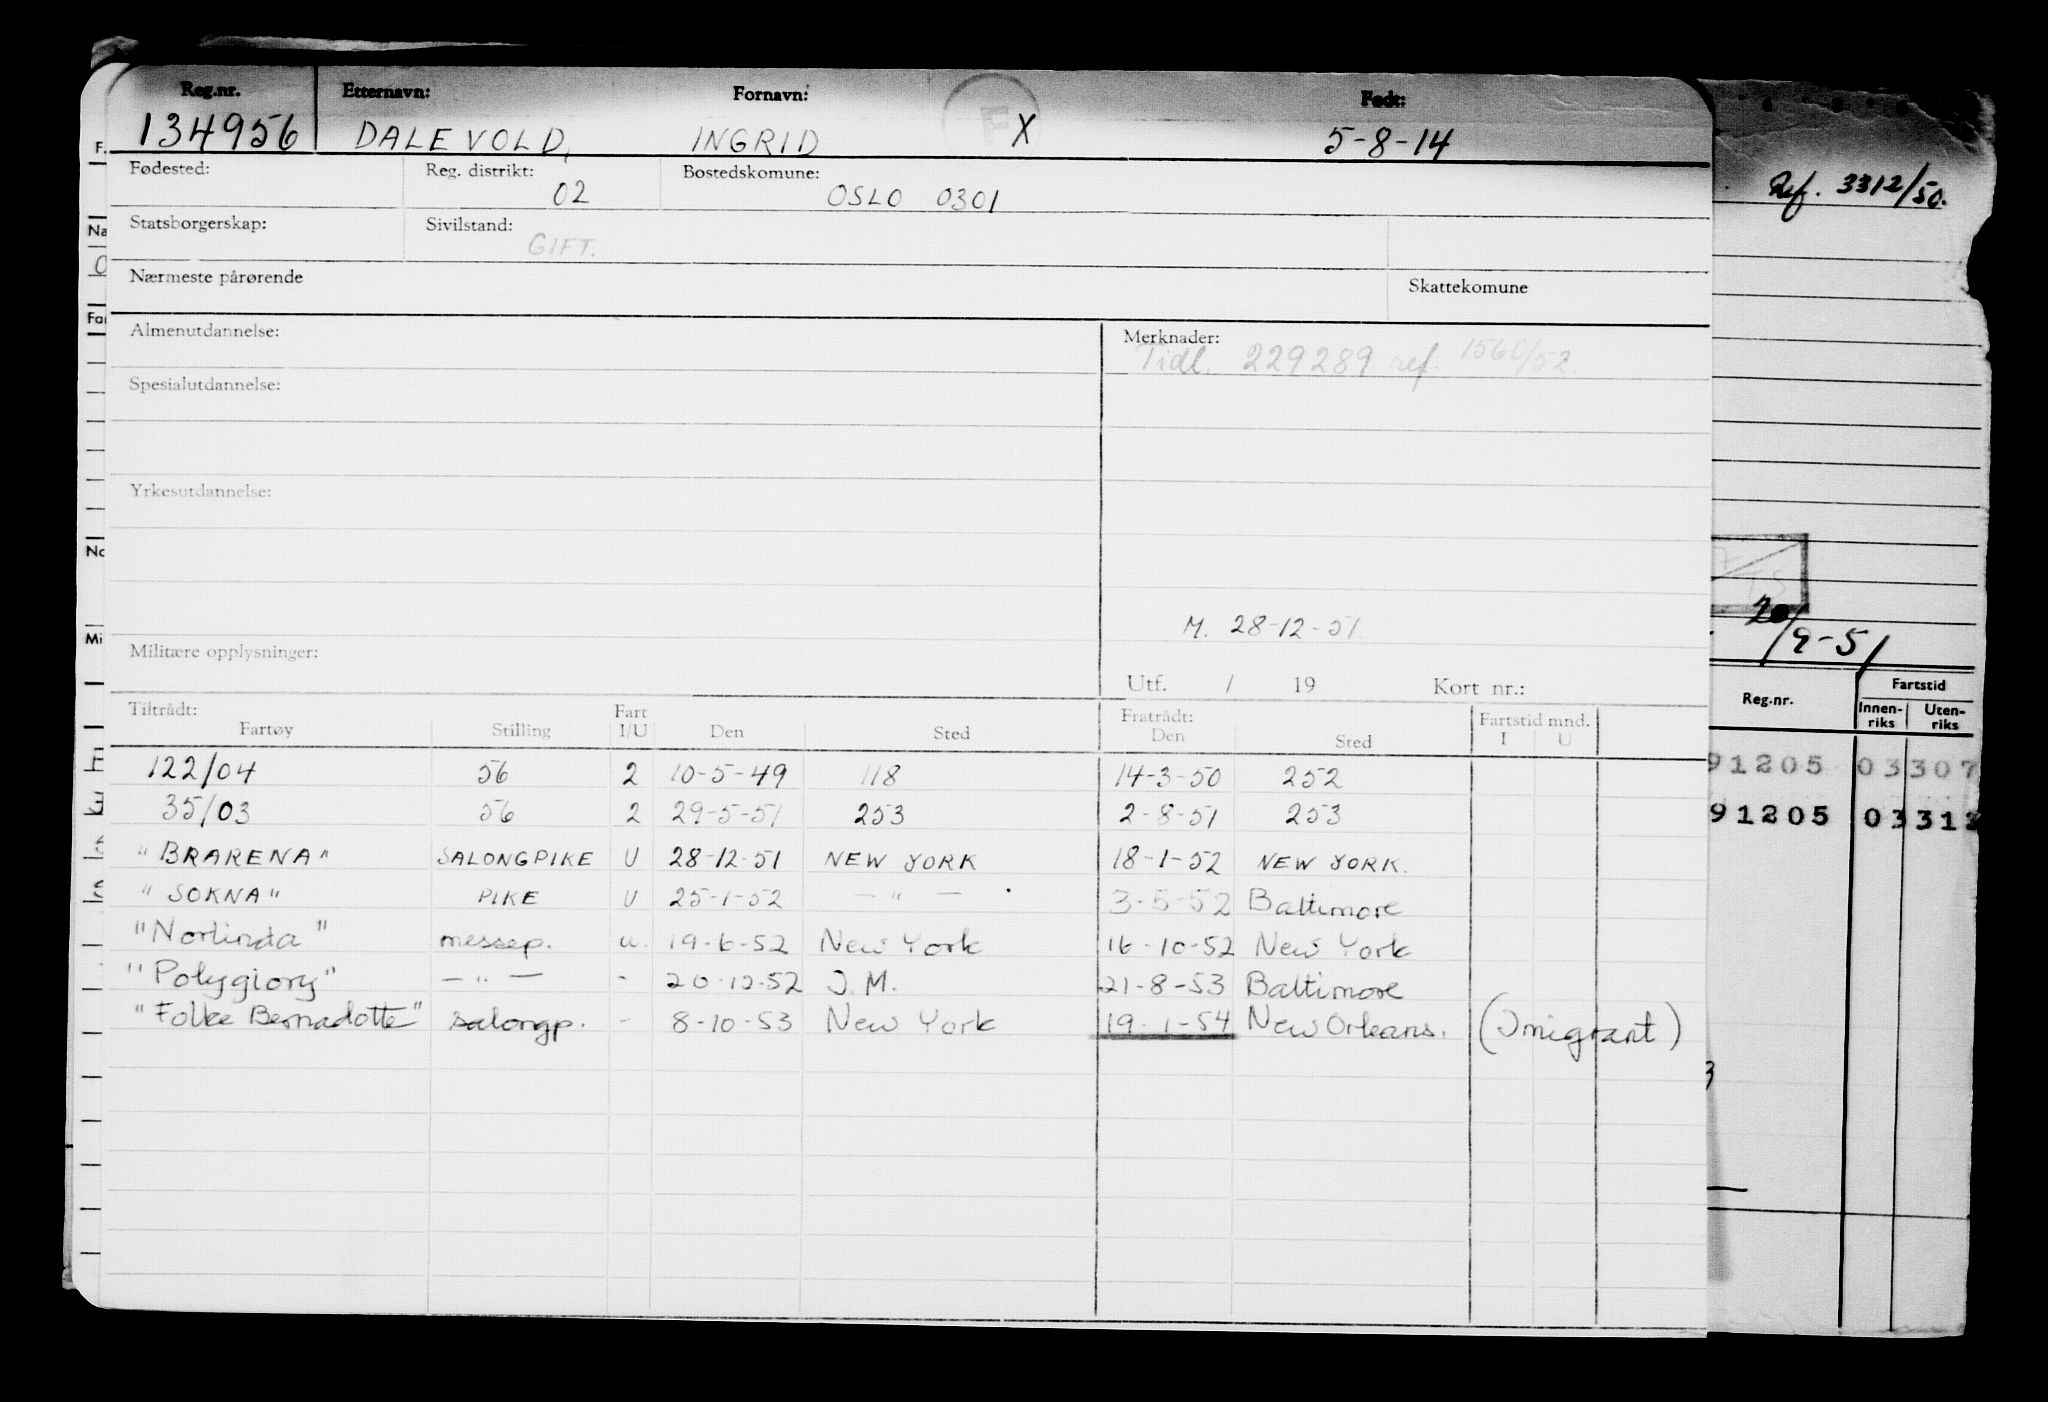 Reg.nr. Etternavn: Fornavn: F Født:
134956 DALEVOLD, INGRID X 5-8-14
Fødested: Reg. distrikt: 02 Bostedskomune: OSLO 0301
Statsborgerskap: Sivilstand: GIFT.
Nærmeste pårørende Skattekomune
Almenutdannelse: Merknader:
Tidl. 229289 ref. 1560/52.
Spesialutdannelse:
Yrkesutdannelse:
M. 28-12-51.
Militære opplysninger:
Utf. / 19 Kort nr.:
Tiltrådt: Fart Fratrådt: Fartstid mnd.
Fartøy Stilling I/U Den Sted Den Sted I U
122/04 56 2 10-5-49 118 14-3-50 252
35/03 56 2 29-5-51 253 2-8-51 253
"BRARENA" SALONGPIKE U 28-12-51 NEW YORK 18-1-52 NEW YORK.
"SOKNA" PIKE U 25-1-52 — " — 3-5-52 Baltimore
"Norlinda" messep. u. 19-6-52 New York 16-10-52 New York
"Polyglory" — " — - 20-12-52 J.M. 21-8-53 Baltimore
"Folke Bernadotte" salongp. - 8-10-53 New York 19-1-54 New Orleans. (Imigrant)
F.
Na
O
Far
No
Mi
Ref. 3312/50.
/9-51
Reg.nr. Fartstid
Innen-riks Uten-riks
91205 03307
91205 03312